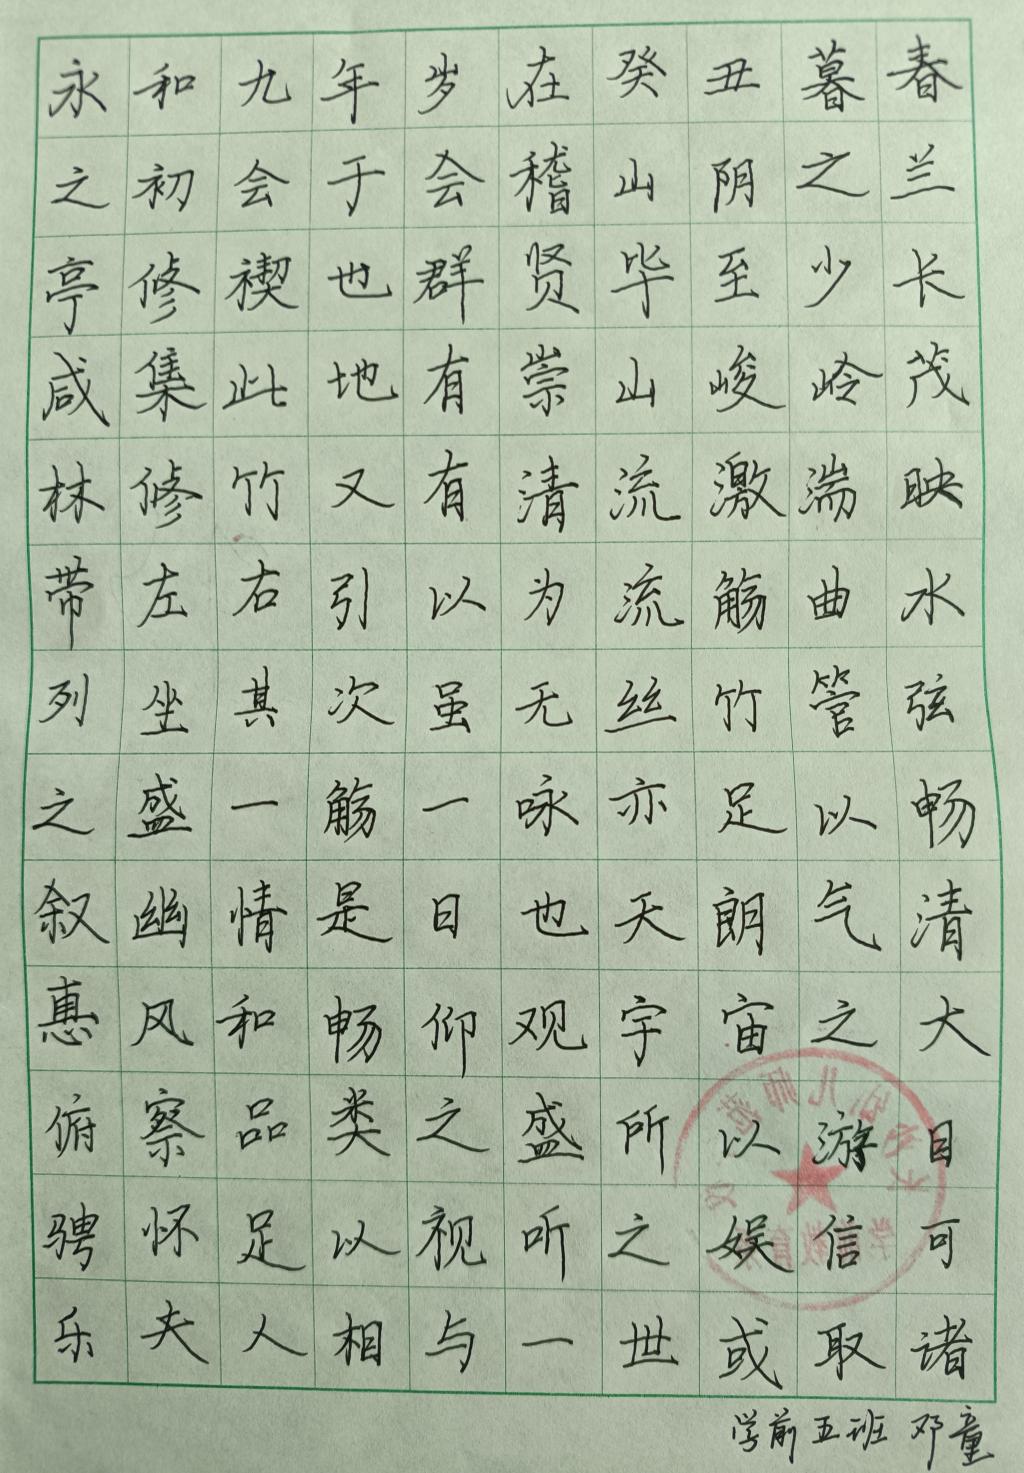 永和九年岁在癸丑暮春
之初会于会稽山阴之兰
亭修禊也群贤毕至少长
咸集此地有崇山峻岭茂
林修竹又有清流激湍映
带左右引以为流觞曲水
列坐其次虽无丝竹管弦
之盛一觞一咏亦足以畅
叙幽情是日也天朗气清
惠风和畅仰观宇宙之大
俯察品类之盛所以游目
骋怀足以视听之娱信可
乐夫人相与一世或取诸
学前五班 邓童